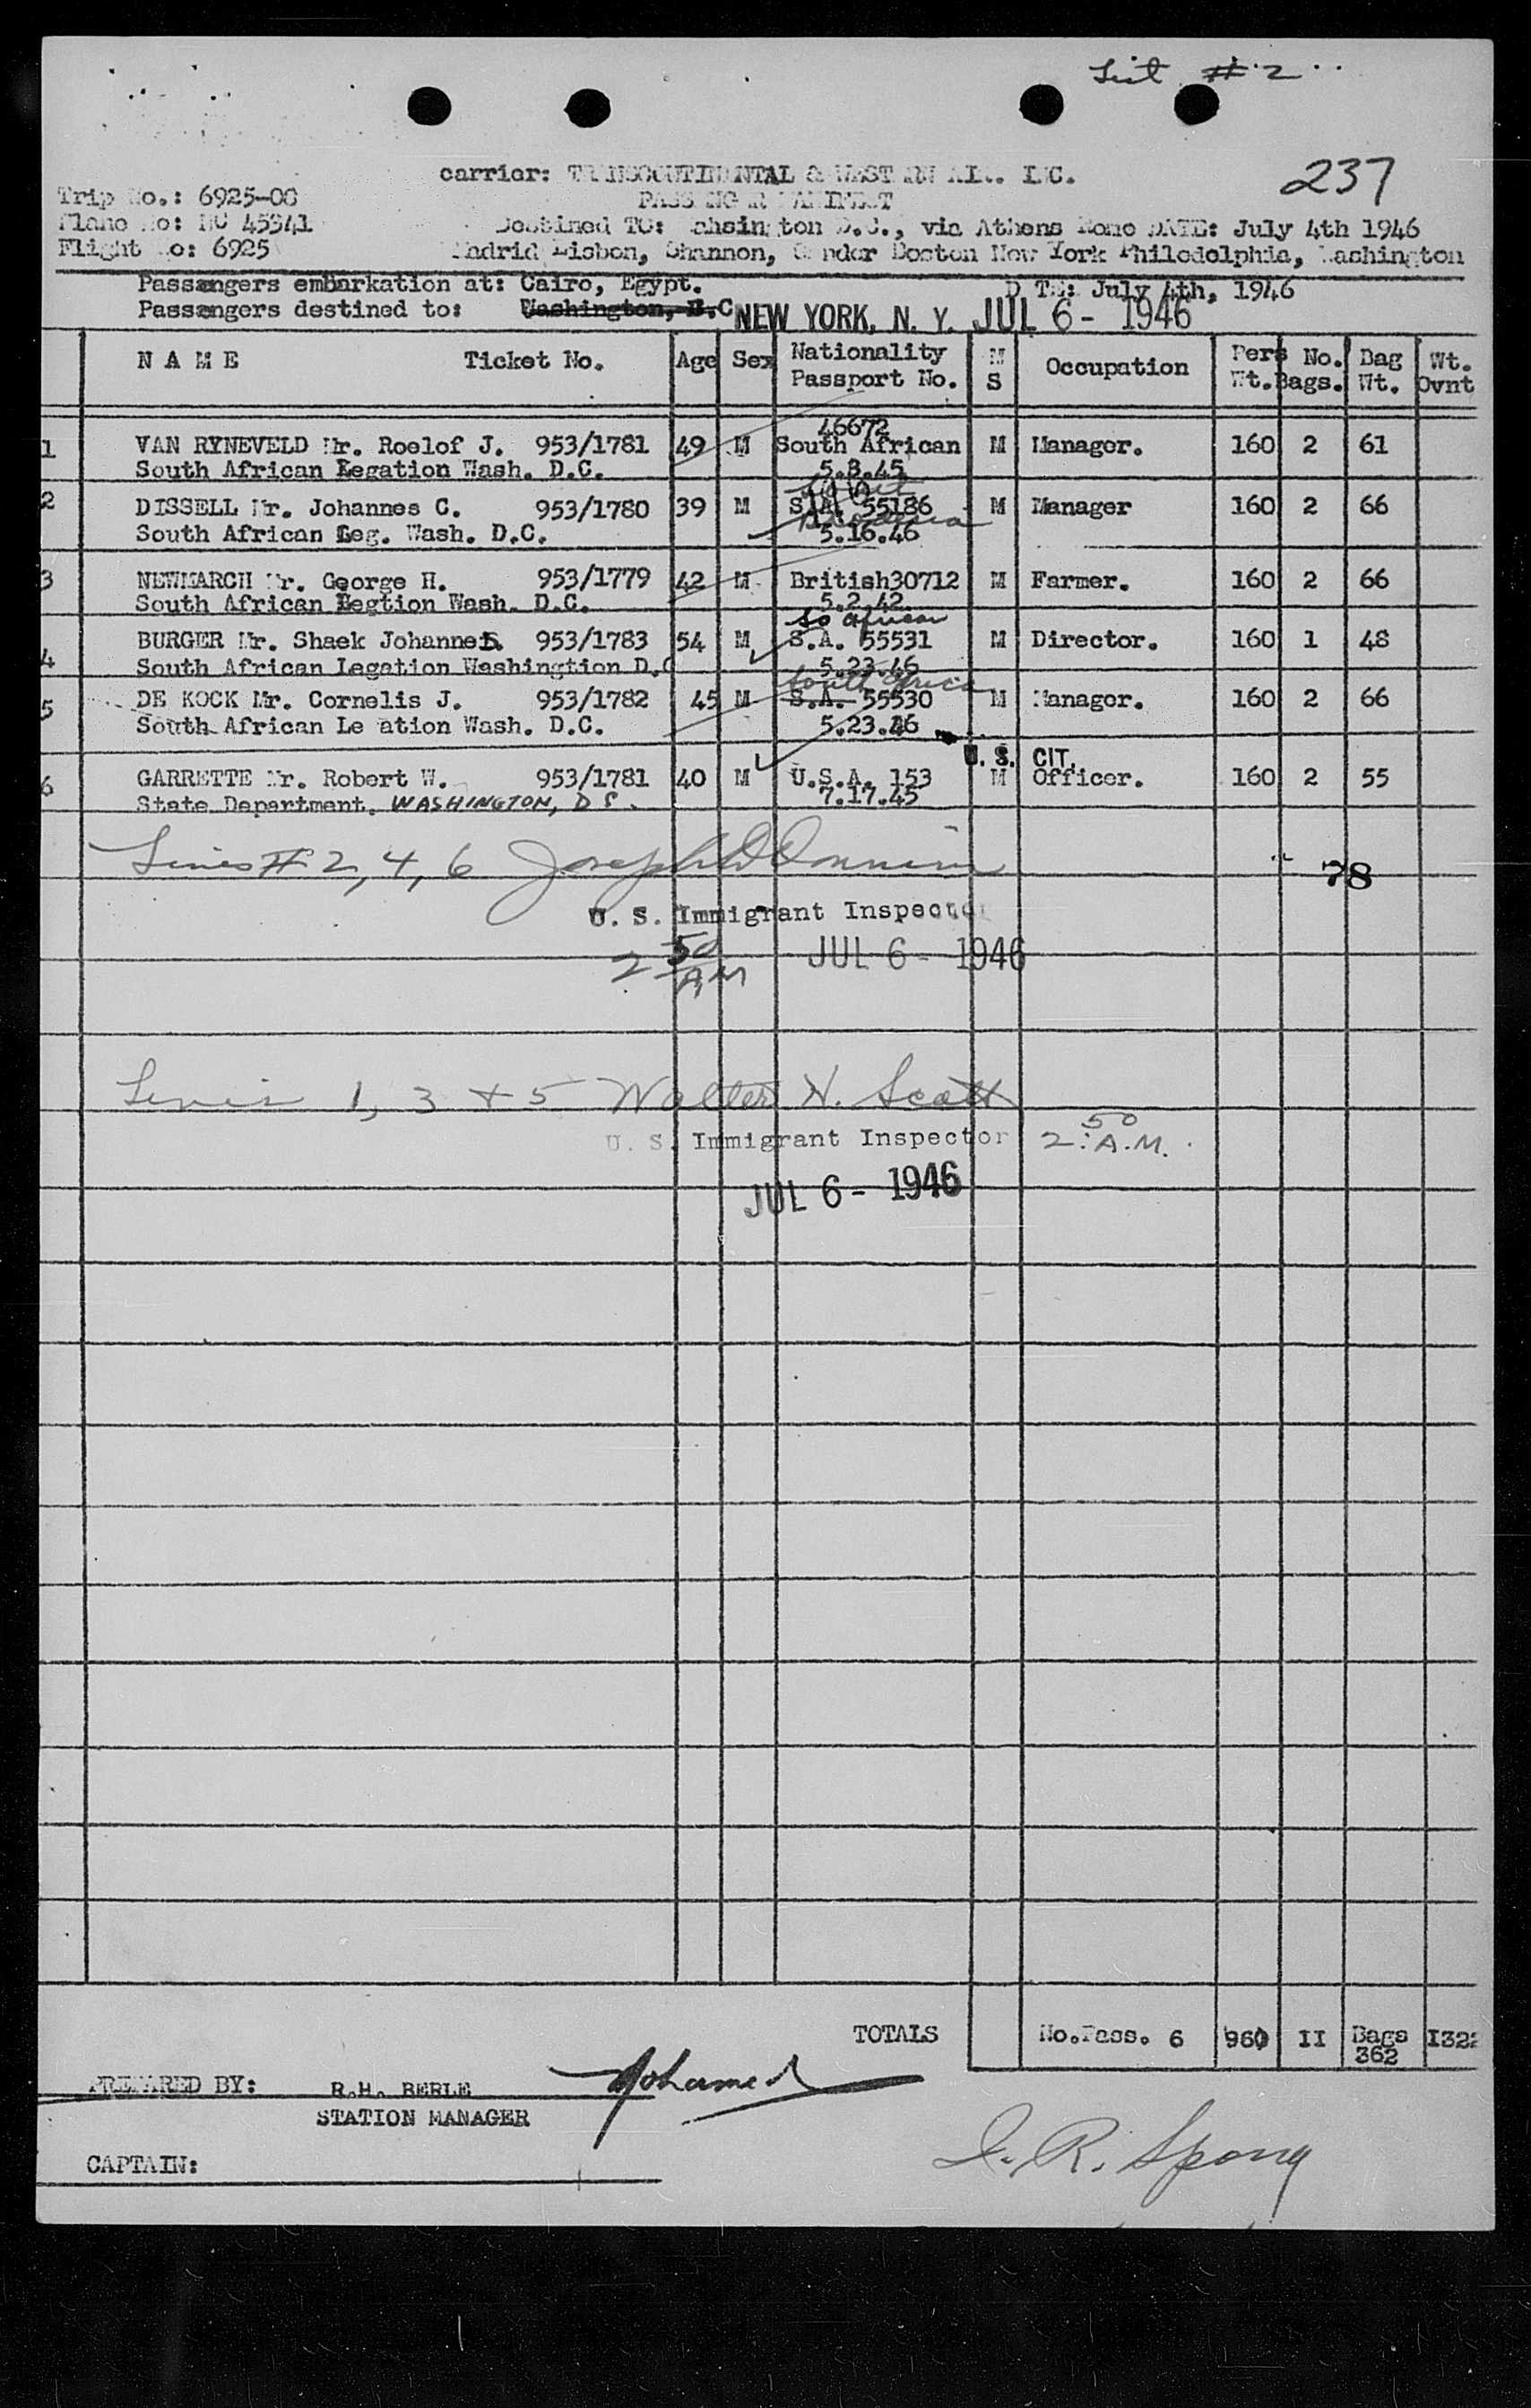 List #2
237
carrier: TRANSCONTINENTAL & WESTERN AIR. INC.
PASSENGER MANIFEST
Trip No.: 6925-08
Plane No: NC 45341
Flight No: 6925
Destined TO: Wahsington D.C., via Athens Rome DATE: July 4th 1946
Madrid Lisbon, Shannon, Gander Boston New York Philedelphia, Washington
Passengers embarkation at: Cairo, Egypt. DATE: July 4th, 1946
Passengers destined to: Washington, D.C NEW YORK, N. Y. JUL 6 - 1946
NAME Ticket No. Age Sex Nationality Passport No. M S Occupation Pers Wt. No. Bags. Bag Wt. Wt. Ovnt
46672
1 VAN RYNEVELD Mr. Roelof J. 953/1781 49 M South African M Manager. 160 2 61
South African Legation Wash. D.C. 5.8.45
2 DISSELL Mr. Johannes C. 953/1780 39 M S.A. 55186 M Manager 160 2 66
South African Leg. Wash. D.C. 5.16.46
3 NEWMARCH Mr. George H. 953/1779 42 M British30712 M Farmer. 160 2 66
South African Legtion Wash. D.C. 5.2.42
So African
4 BURGER Mr. Shaek Johannes. 953/1783 54 M S.A. 55531 M Director. 160 1 48
South African Legation Washingtion D.C 5.23.46
South Africa
5 DE KOCK Mr. Cornelis J. 953/1782 45 M S.A. 55530 M Manager. 160 2 66
South African Le ation Wash. D.C. 5.23.46
U. S. CIT.
6 GARRETTE Mr. Robert W. 953/1781 40 M U.S.A. 153 M Officer. 160 2 55
State Department. WASHINGTON, D C. 7.17.45
Lines # 2, 4, 6
78
U. S. Immigrant Inspector
2 50 AM JUL 6 - 1946
Lines 1, 3 + 5 Walter H. Scott
U. S. Immigrant Inspector 2:50 A.M.
JUL 6 - 1946
TOTALS No.Pass. 6 960 II Bags 362 I322
PREPARED BY: R.H. BERLE Mohamed
STATION MANAGER
CAPTAIN: I. R. Spong